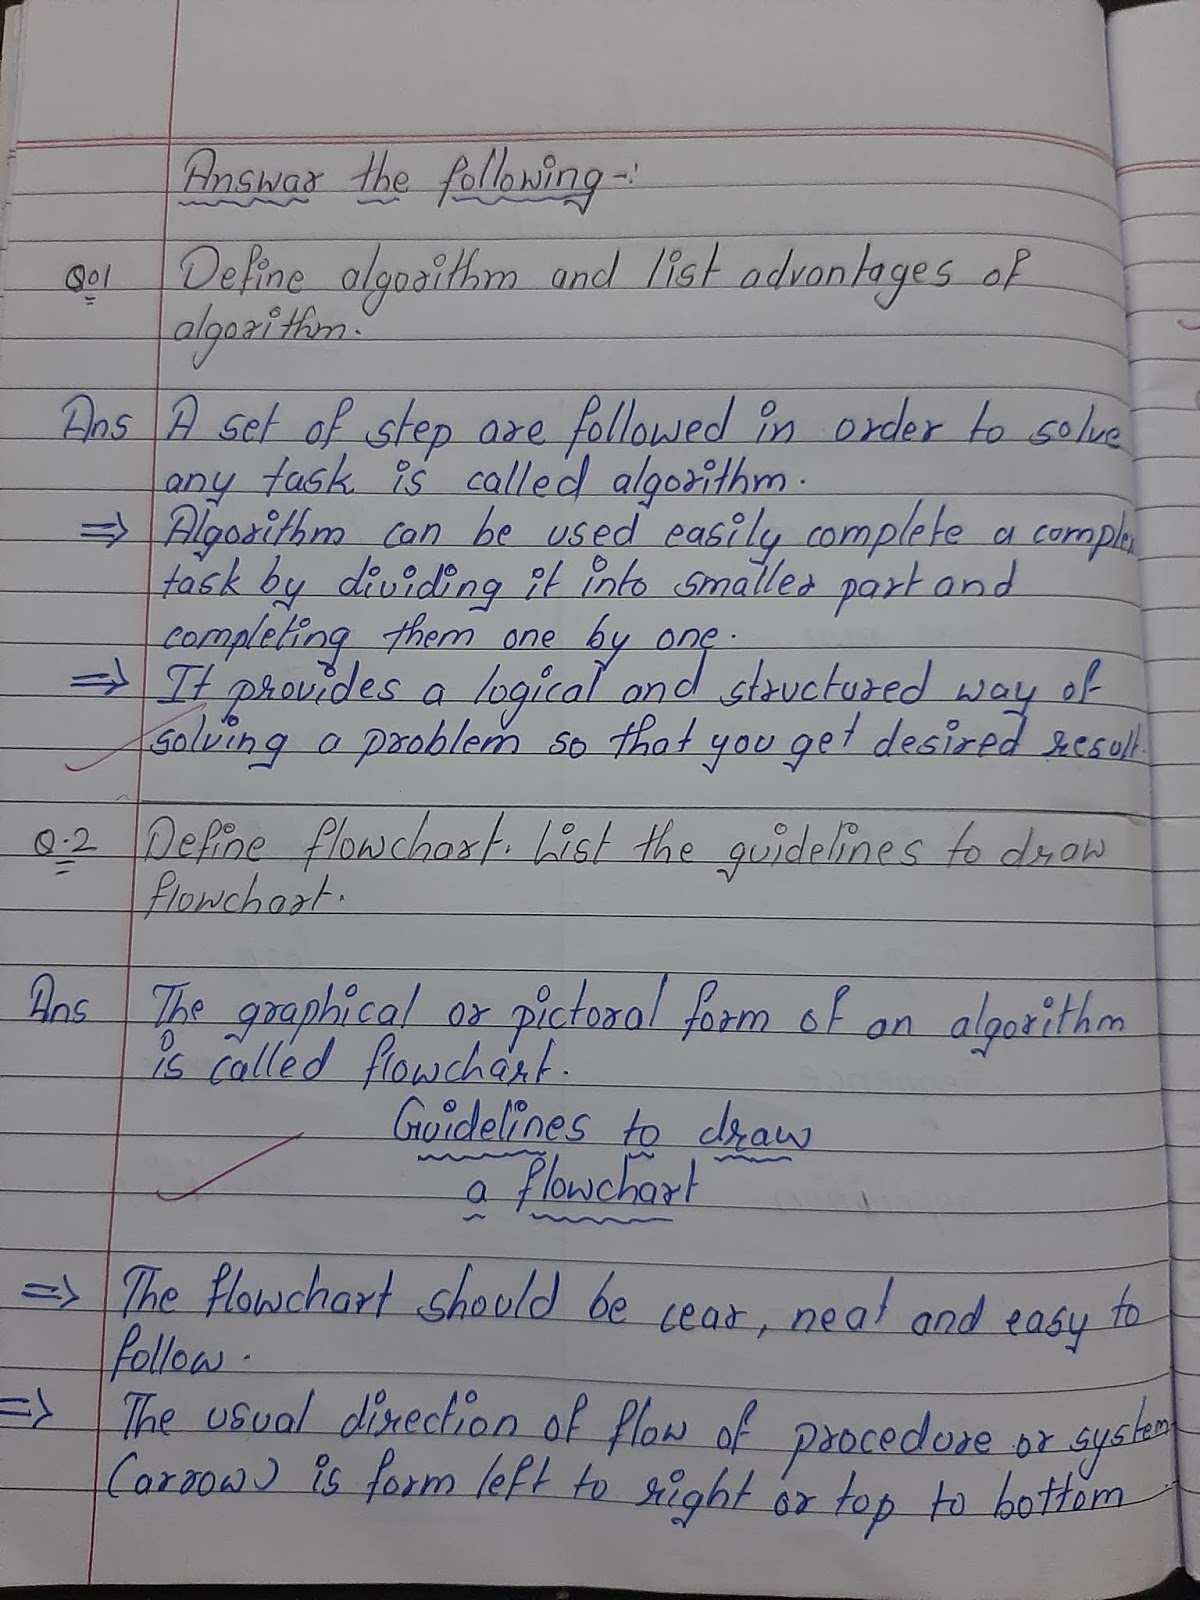 Answar the following-:
Q01 Define algorithm and list advantages of
algorithm.
Ans A set of step are followed in order to solve
any task is called algorithm.
⇒ Algorithm can be used easily complete a comple
task by dividing it into smaller part and
completing them one by one.
⇒ It provides a logical and structured way of
solving a problem so that you get desired result.
Q.2 Define flowchart. List the guidelines to draw
flowchart.
Ans The graphical or pictoral form of an algorithm
is called flowchart.
Guidelines to draw
a flowchart
⇒ The flowchart should be cear, neat and easy to
follow.
⇒ The usual direction of flow of procedure or system
(arrow) is form left to right or top to bottom